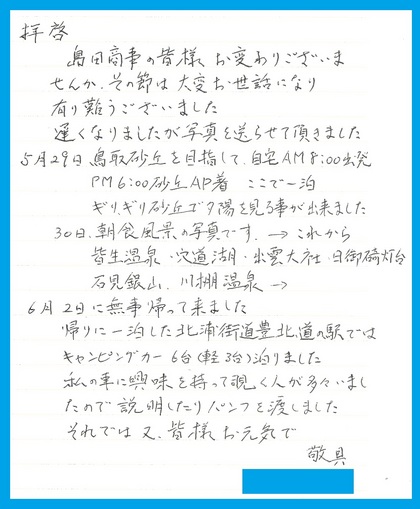 拝啓
島田商事の皆様 お変わりございま
せんか、その節は大変お世話になり
有り難うございました
遅くなりましたが写真を送らせて頂きました
5月29日 鳥取砂丘を目指して、自宅AM8:00出発
PM6:00砂丘AP着 ここで一泊
ギリ、ギリ砂丘で夕陽を見る事が出来ました
30日、朝食風景の写真です。→ これから
皆生温泉・宍道湖・出雲大社・日御碕灯台
石見銀山、川棚温泉 →
6月2日に無事帰って来ました
帰りに一泊した北浦街道豊北道の駅では
キャンピングカー6台(軽3台)泊りました
私の車に興味を持って覗く人が多々いまし
たので説明したりパンフを渡しました
それでは又、皆様お元気で
敬具